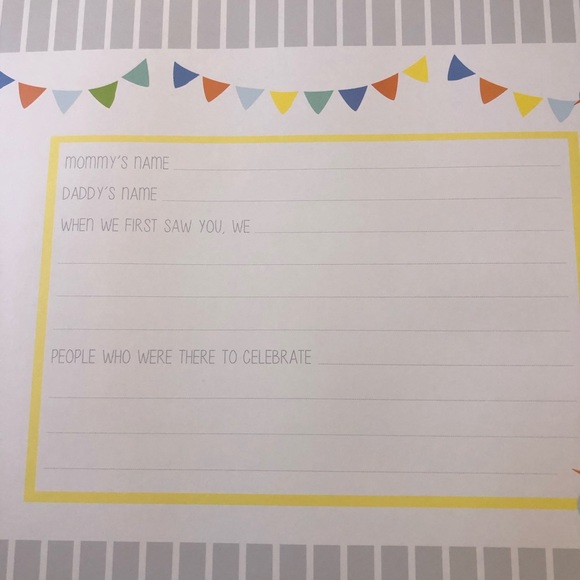 MOMMY'S NAME
DADDY'S NAME
WHEN WE FIRST SAW YOU, WE
PEOPLE WHO WERE THERE TO CELEBRATE